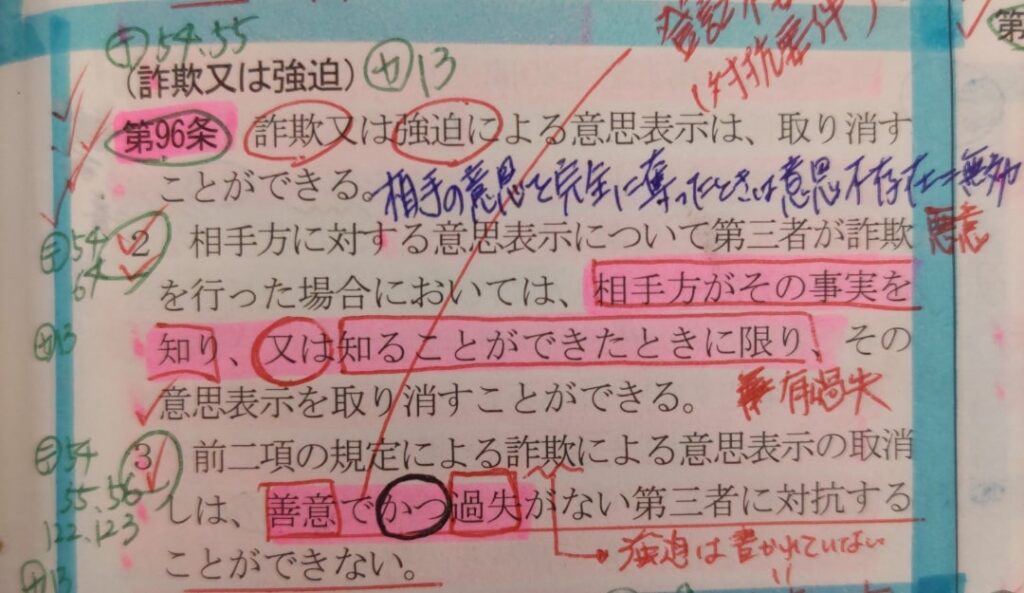 54.55
(詐欺又は強迫) 13
第96条 詐欺又は強迫による意思表示は、取り消す
ことができる。相手の意思を完全に奪ったときは意思不存在=無効
2 相手方に対する意思表示について第三者が詐欺 悪意
54
64
を行った場合においては、相手方がその事実を
13
知り、又は知ることができたときに限り、その
意思表示を取り消すことができる。 有過失
54
3 前二項の規定による詐欺による意思表示の取消
55.56
しは、善意でかつ過失がない第三者に対抗する
122.123
強迫は書かれていない
ことができない。
13
第